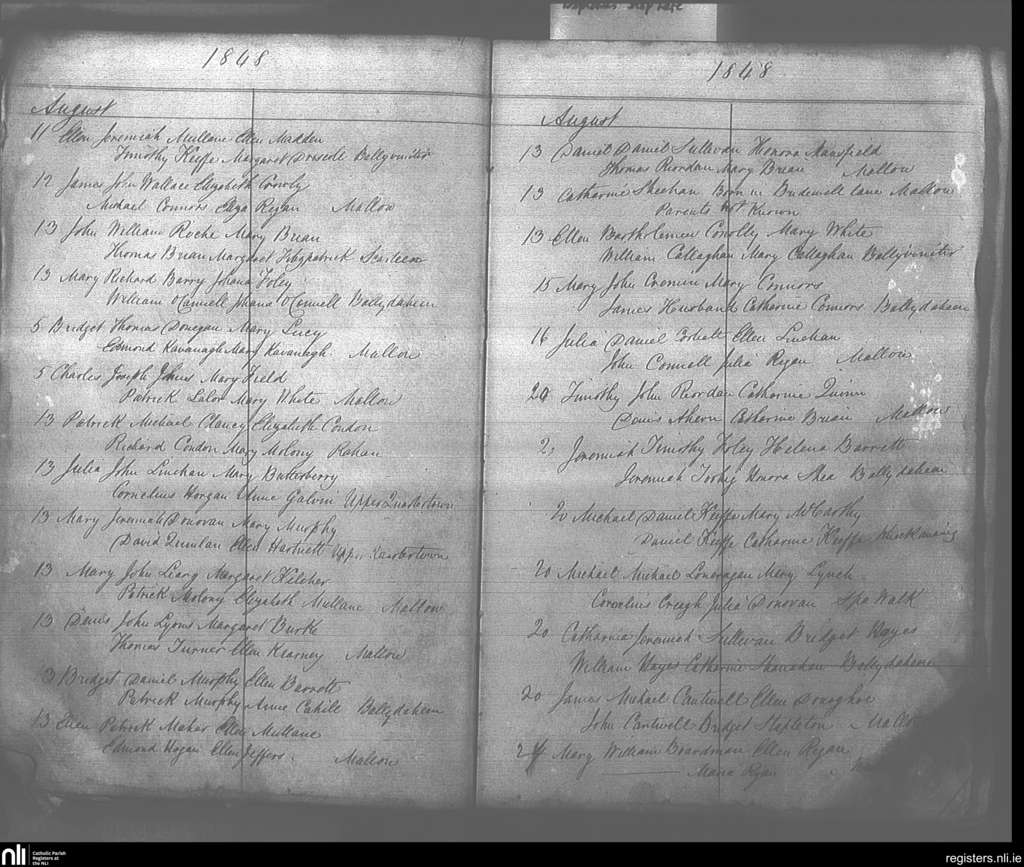 1848
August
11 Ellen Jeremiah Mullane Ellen Madden
Timothy Keeffe Margaret Driscole Ballyviniter
12 James John Wallace Elizabeth Crowly
Michael Connors Eliza Regan Mallow
13 John William Roche Mary Brean
Thomas Brean Margaret Fitzpatrick
13 Mary Richard Barry Johana Foley
William O'Connell Johana O'Connell Ballydaheen
5 Bridget Thomas Donegan Mary Lucy
Edmond Kavanagh Mary Kavanagh Mallow
5 Charles Joseph Johns Mary Field
Patrick Lalor Mary White Mallow
13 Patrick Michael Clancy Elizabeth Condon
Richard Condon Mary Molony Rahan
13 Julia John Linehan Mary Butterberry
Cornelius Horgan Anne Galvin Upper Quartertown
13 Mary Jeremiah Donovan Mary Murphy
David Quinlan Ellen Hartnett Upper Quartertown
13 Mary John Leary Margaret Kelcher
Patrick Molony Elizabeth Mullane Mallow
13 Denis John Lyons Margaret Burke
Thomas Turner Ellen Kearney Mallow
13 Bridget Daniel Murphy Ellen Barrett
Patrick Murphy Anne Cahill Ballydaheen
13 Ellen Patrick Maher Ellen Mullane
Edmond Hogan Ellen Jeffers Mallow
1848
August
13 Daniel Daniel Sullivan Honora Mansfield
Thomas Riordan Mary Brean Mallow
13 Catharine Sheehan Born in Bridewell lane Mallow
Parents Not Known
13 Ellen Bartholemew Conolly Mary White
William Callaghan Mary Callaghan Ballyviniter
15 Mary John Cronin Mary Connors
James Husband Catharine Connors Ballydaheen
16 Julia Daniel Corbett Ellen Linehan
John Connell Julia Regan Mallow
20 Timothy John Riordan Catharine Quinn
Denis Ahern Catharine Brien Mallow
2 Jeremiah Timothy Foley Helena Barrett
Jeremiah Honora Shea Ballydaheen
20 Michael Daniel Keeffe Mary McCarthy
Daniel Keeffe Catharine Keeffe
20 Michael Michael Loneragan Mary Lynch
Cornelius Creagh Julia Donovan Spa Walk
20 Catharine Jeremiah Sullivan Bridget Hayes
William Hayes Catharine Ballydaheen
20 James Michael Cantwell Ellen Donoghoe
John Cantwell Bridget Stapleton Mallow
24 Mary William Boardman Ellen Regan
Maria Ryan
nli Catholic Parish
Registers at
the NLI
registers.nli.ie